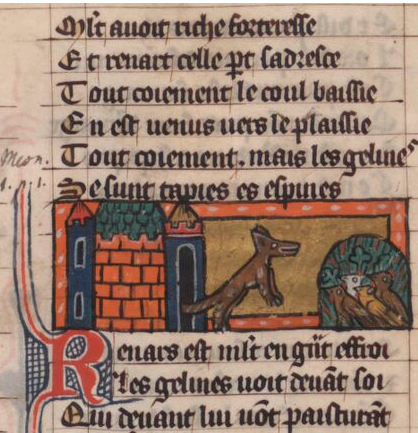 Mlt avoit riche forteresse
Et renart celle pt sadresce
Tout coiement le coul baissie
En est venus vers le plaissie
Tout coiement . mais les gelines
Se sunt tapies es espines
Meon.
Renars est mlt en gnt effroi
Les gelines voit devant soi
Qui devant lui vont paisturant